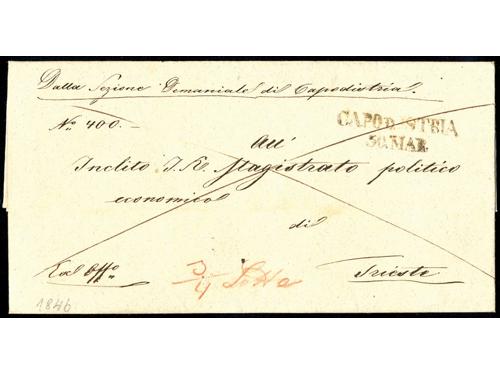 Dalla Sezione Demaniale di Capodistria.
No. 400.-
CAPOD'STRIA
30. MAR.
All'
Inclito I. R. Magistrato politico
economico
di
Ex Offo
Trieste
1846